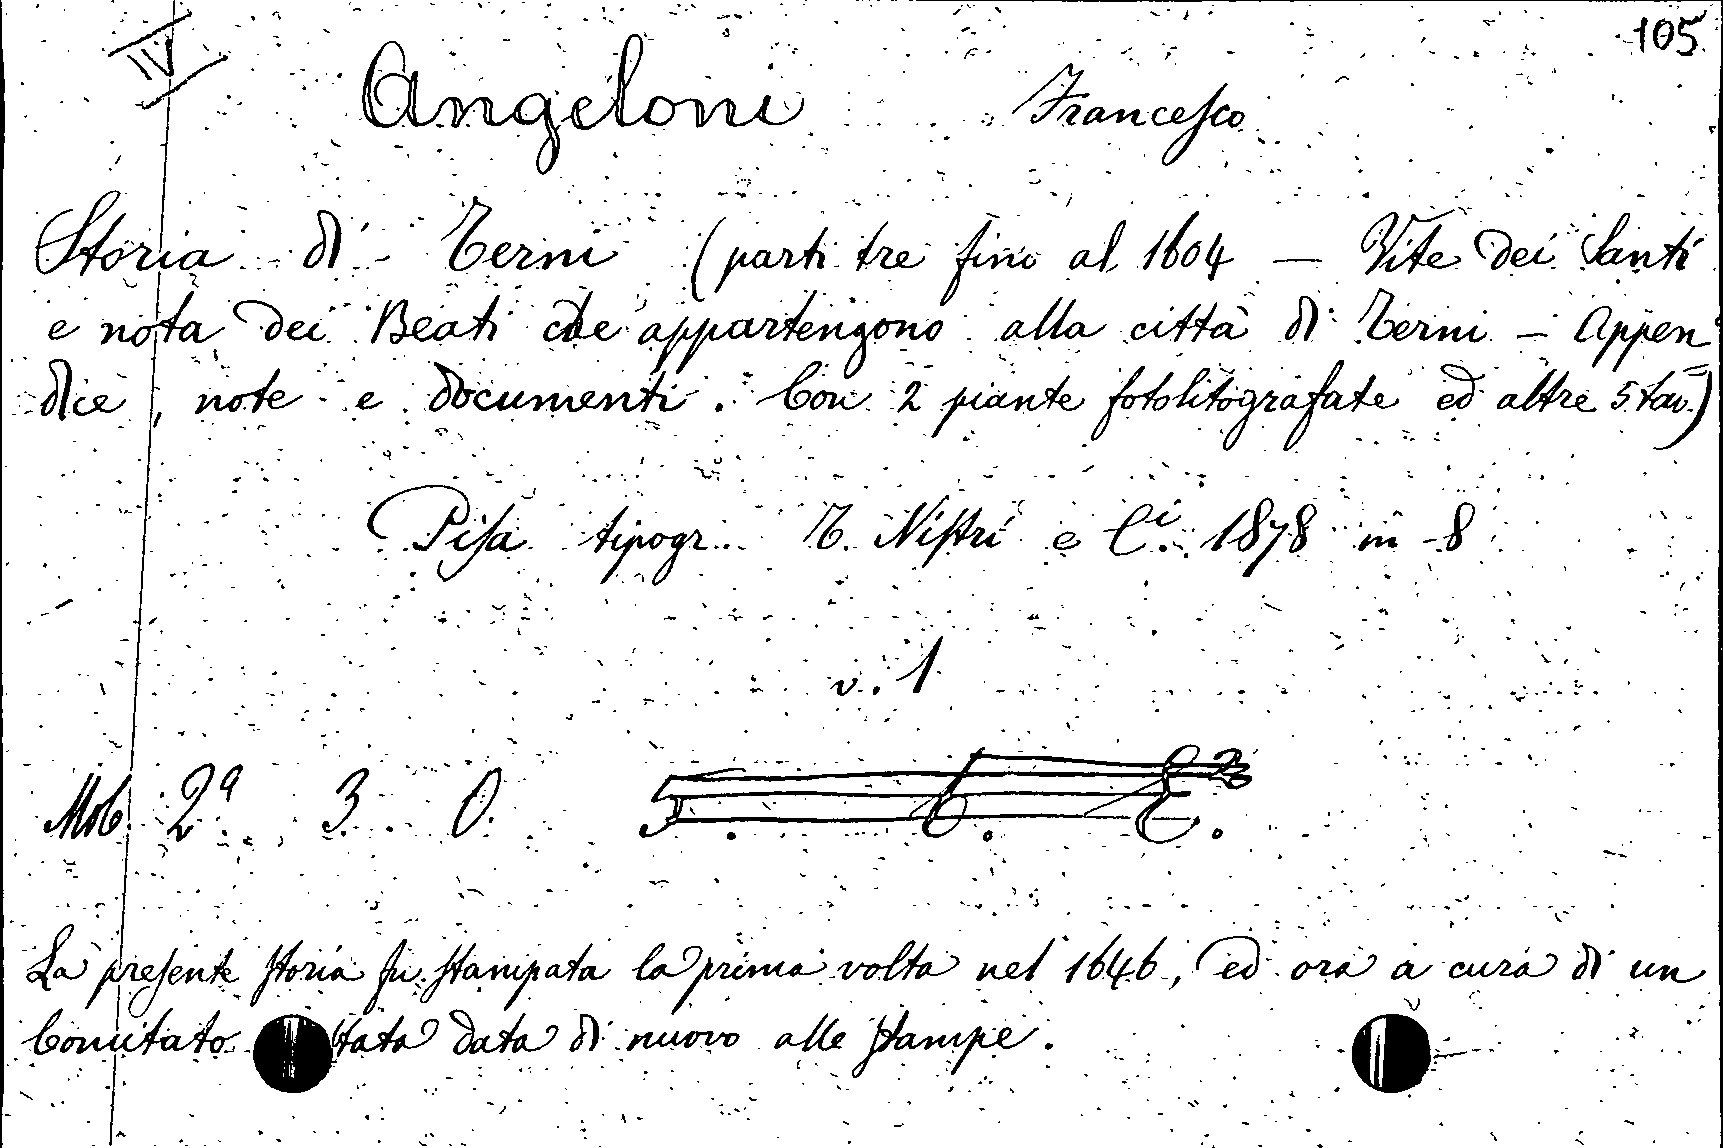 IV 105
Angeloni Francesco
Storia di Terni (parti tre fino al 1604 — Vite dei Santi
e nota dei Beati che appartengono alla città di Terni — Appen
dice, note e documenti. Con 2 piante fotolitografate ed altre 5 tav.)
Pisa tipogr. T. Nistri e C.i 1878 in-8
v. 1
Mob. 2a 3. 0.
La presente storia fu stampata la prima volta nel 1646, ed ora a cura di un
Comitato stata data di nuovo alle stampe.